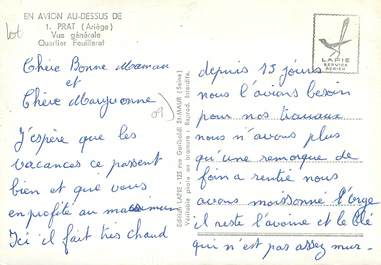 EN AVION AU-DESSUS DE
1. PRAT (Ariège)
Vue générale
Quartier Fouilleret
LAPIE
SERVICE
AÉRIEN
Chère Bonne Maman
et
Chère Maryvonne
09
J'espère que les
vacances ce passent
bien et que vous
en profité au maximum
Ici il fait très chaud
Edition LAPIE - 125 rue Garibaldi St-MAUR (Seine)
Véritable photo au bromure : Reprod. Interdite.
depuis 15 jours
nous l'avions besoin
pour nos travaux
nous n'avons plus
qu'une remorque de
foin a rentré nous
avons moissonné l'orge
il reste l'avoine et le blé
qui n'est pas assez mur.